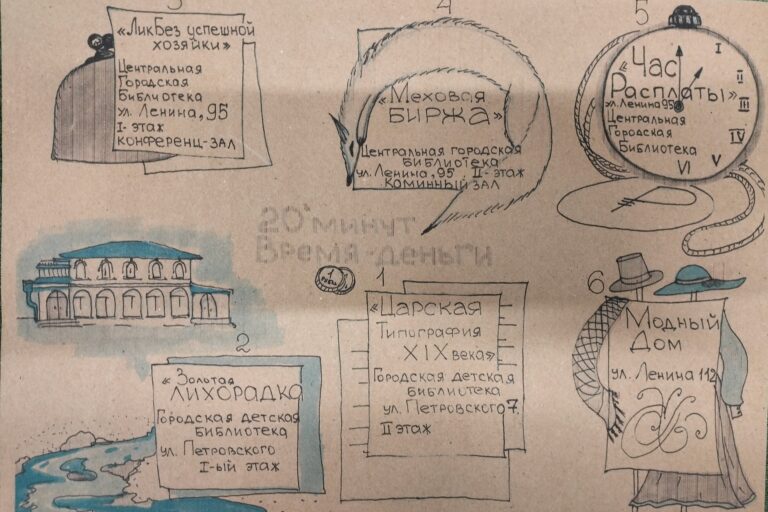 3
«ЛикБез успешной
хозяйки»
Центральная
Городская
Библиотека
ул. Ленина, 95
I- этаж
конференц-зал
4
«Меховая
БИРЖА»
Центральная городская
библиотека
ул. Ленина, 95 II- этаж
Каминный зал
5
«Час
Расплаты»
ул. Ленина 95
Центральная
Городская
Библиотека
I
II
III
IV
V
VI
20 минут
Время-деньги
1
1
«Царская
Типография
XIX века»
Городская детская
библиотека
ул. Петровского 7.
II этаж
2
«Золотая
ЛИХОРАДКА
Городская детская
библиотека
ул. Петровского
I-ый этаж
6
Модный
Дом
ул. Ленина 112